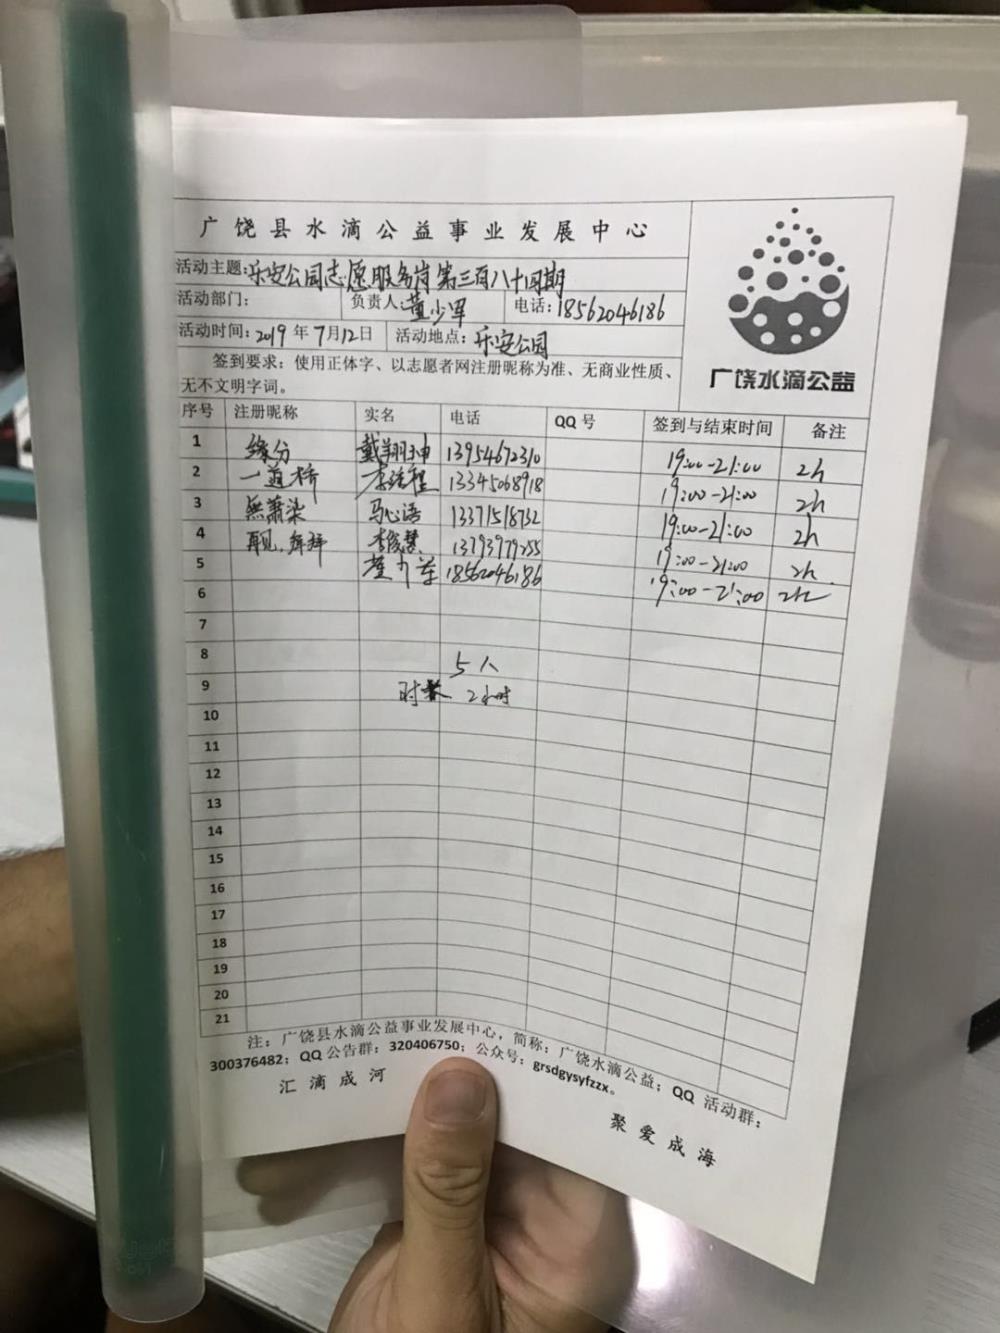 广饶县水滴公益事业发展中心
活动主题:乐安公园志愿服务岗第三百八十四期
活动部门: 负责人:董少军 电话:18562046186
活动时间:2019年7月12日 活动地点:乐安公园
签到要求:使用正体字、以志愿者网注册昵称为准、无商业性质、
无不文明字词。
广饶水滴公益
序号 注册昵称 实名 电话 QQ号 签到与结束时间 备注
1 缘分 戴翔坤 13954672310 19:00-21:00 2h
2 一道桥 13345068918 19:00-21:00 2h
3 無萧染 马心语 13371518732 19:00-21:00 2h
4 再见,拜拜 13793979255 19:00-21:00 2h
5 董少军 18562046186 19:00-21:00 2h
6
7
8 5人
9 时长 2小时
10
11
12
13
14
15
16
17
18
19
20
21
注:广饶县水滴公益事业发展中心,简称:广饶水滴公益;QQ 活动群:
300376482;QQ公告群:320406750;公众号:grsdgysyfzzx。
汇滴成河
聚爱成海